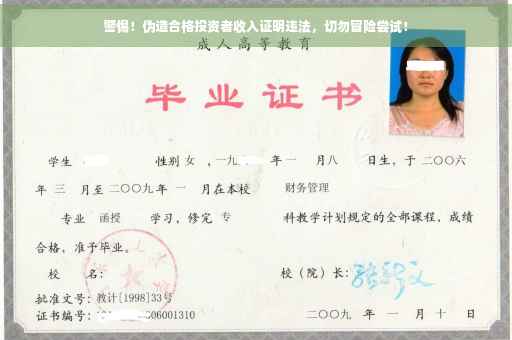 警惕！伪造合格投资者收入证明违法，切勿冒险尝试！
成人高等教育
毕业证书
学生 性别 女 ，一九 年 一 月八 日生，于 二〇〇六
年 三 月至 二〇〇九 年 一 月在本校 财务管理
专业 函授 学习，修完 专 科教学计划规定的全部课程，成绩
合格，准予毕业。
校 名： 校（院）长：
批准文号：教计[1998]33号
证书编号： 06001310 二〇〇九 年 一 月 十 日